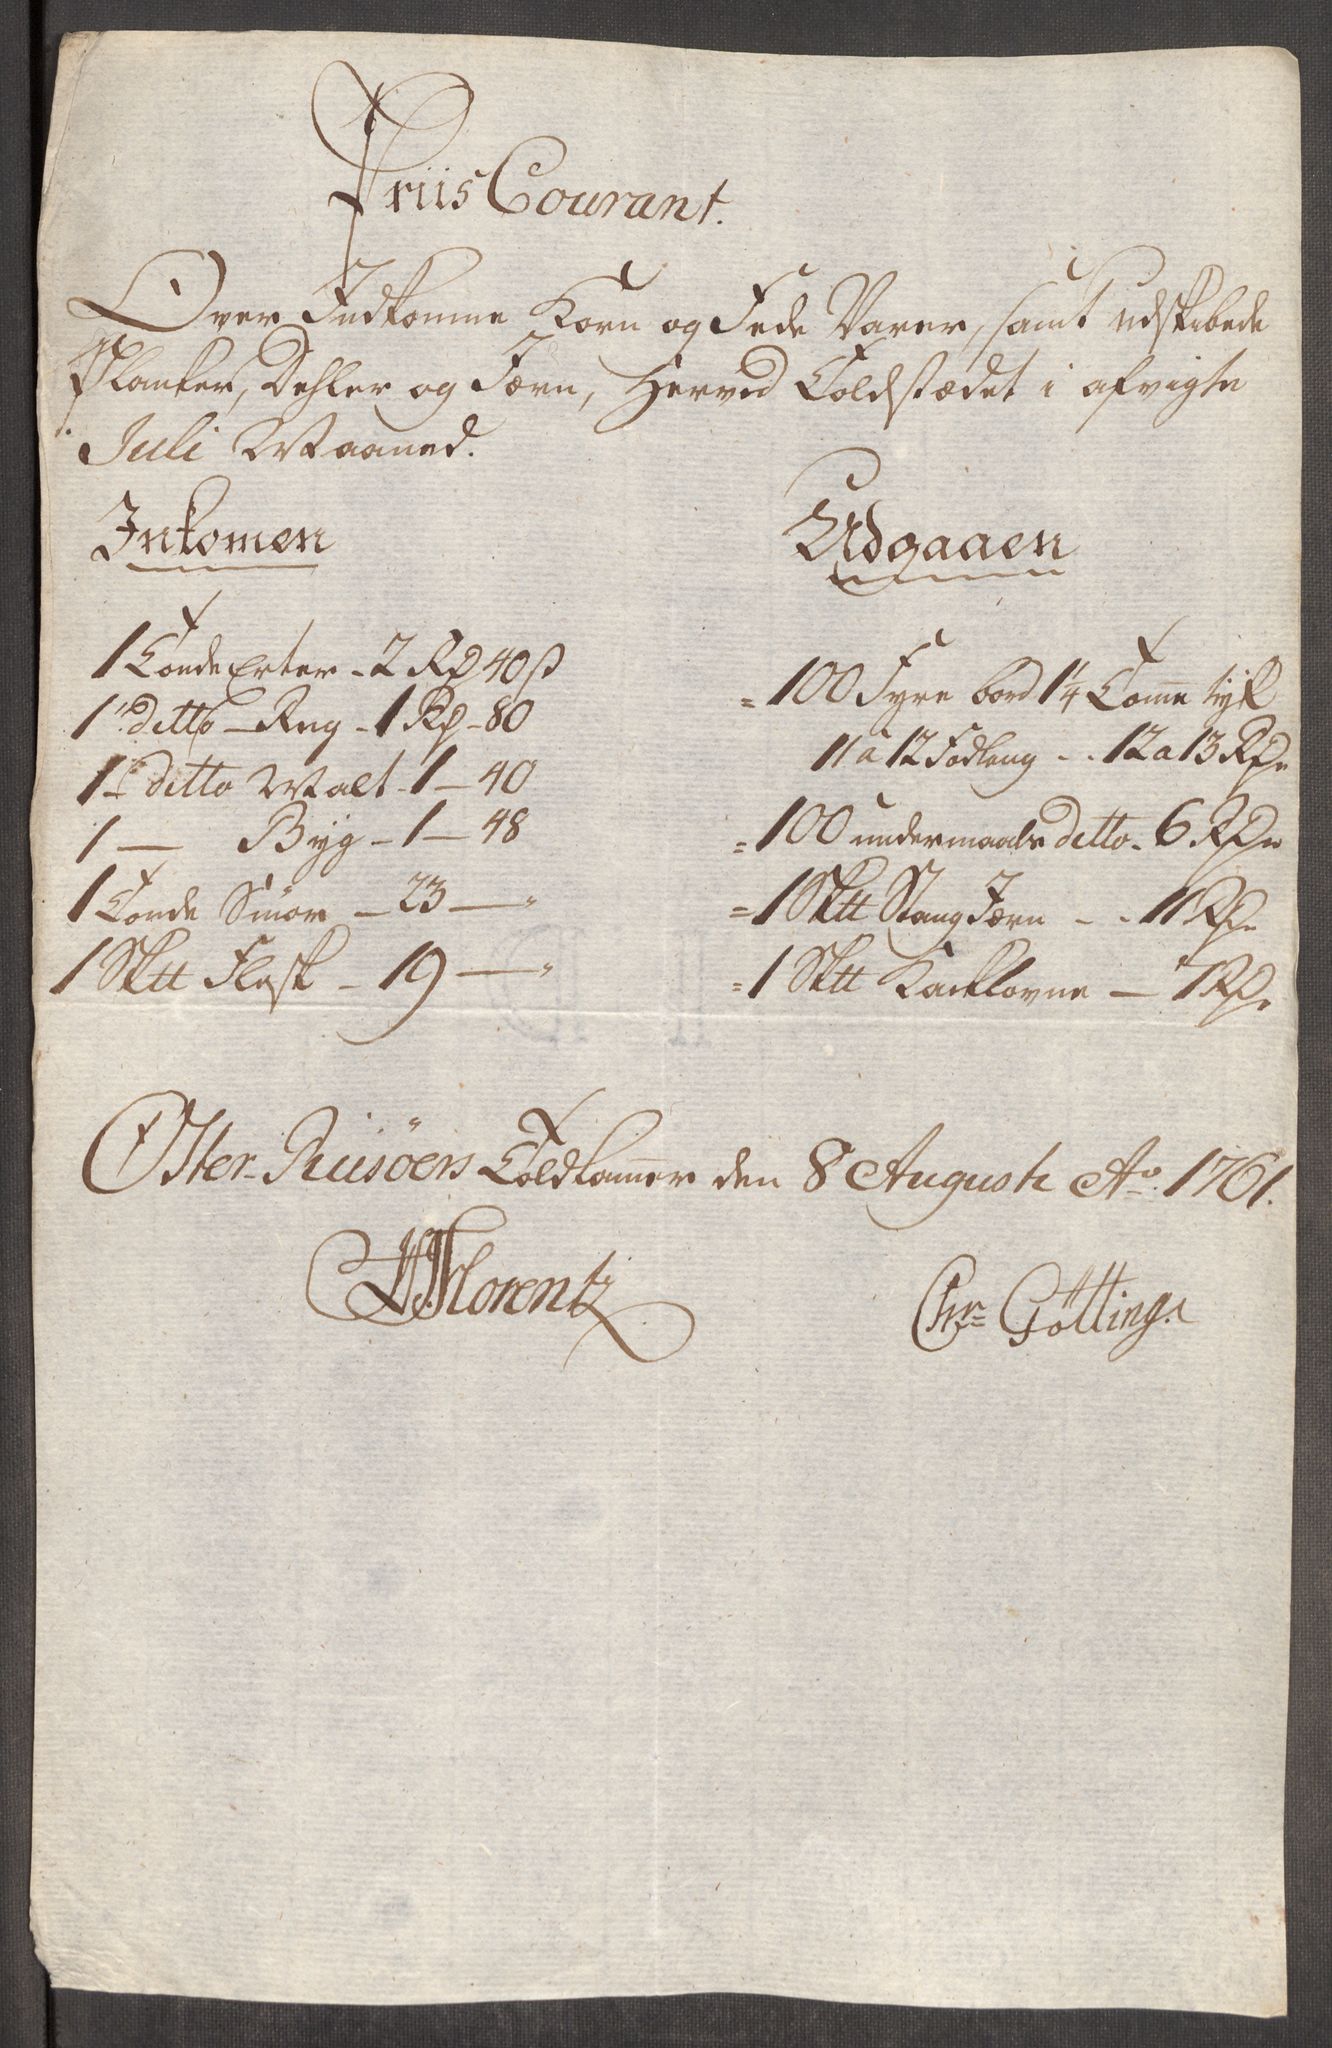 Priis Courant.
Over Indkomne Korn og Fede Varer, samt udskibede
Planker, Dehler og Jærn, Herved Toldstædet i afvigte
Juli Maaned.
Inkomen
1 Tønde Erter - 2 Rd 40 ß
1 ditto - Rug - 1 Rd - 80
1 ditto Malt - 1 - 40
1 - Byg - 1 - 48
1 Tønde Smør - 23 - "
1 Sktt Flesk - 19 - "
Udgaaen
= 100 Fyre bord 1 1/4 Tomme tyk
11 a 12 Fodlang - . 12 a 13 Rdr
= 100 undermaals ditto - 6 Rdr
= 1 Sktt Stang Jærn - - 11 Rdr
= 1 Sktt Kacklovne - 7 Rdr
Øster-Riisöers Toldkammer den 8 Augusti Ao. 1761.
Florentz
Chr= Götting.